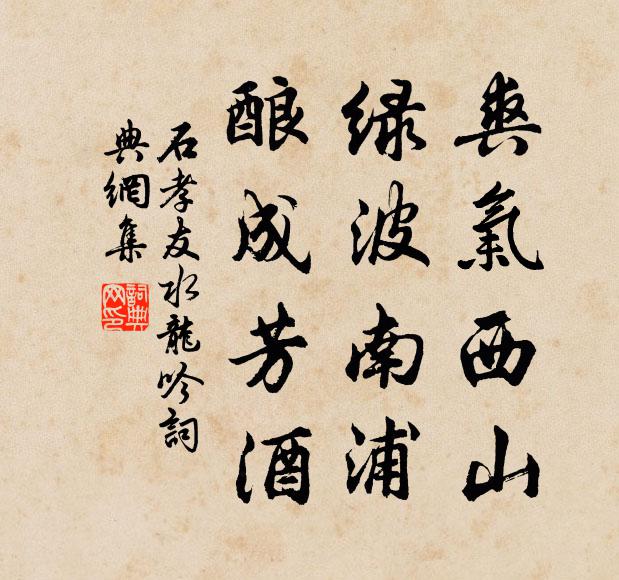 爽氣西山
绿波南浦
酿成芳酒
石孝友水龍吟詞
典網集
詞典網印